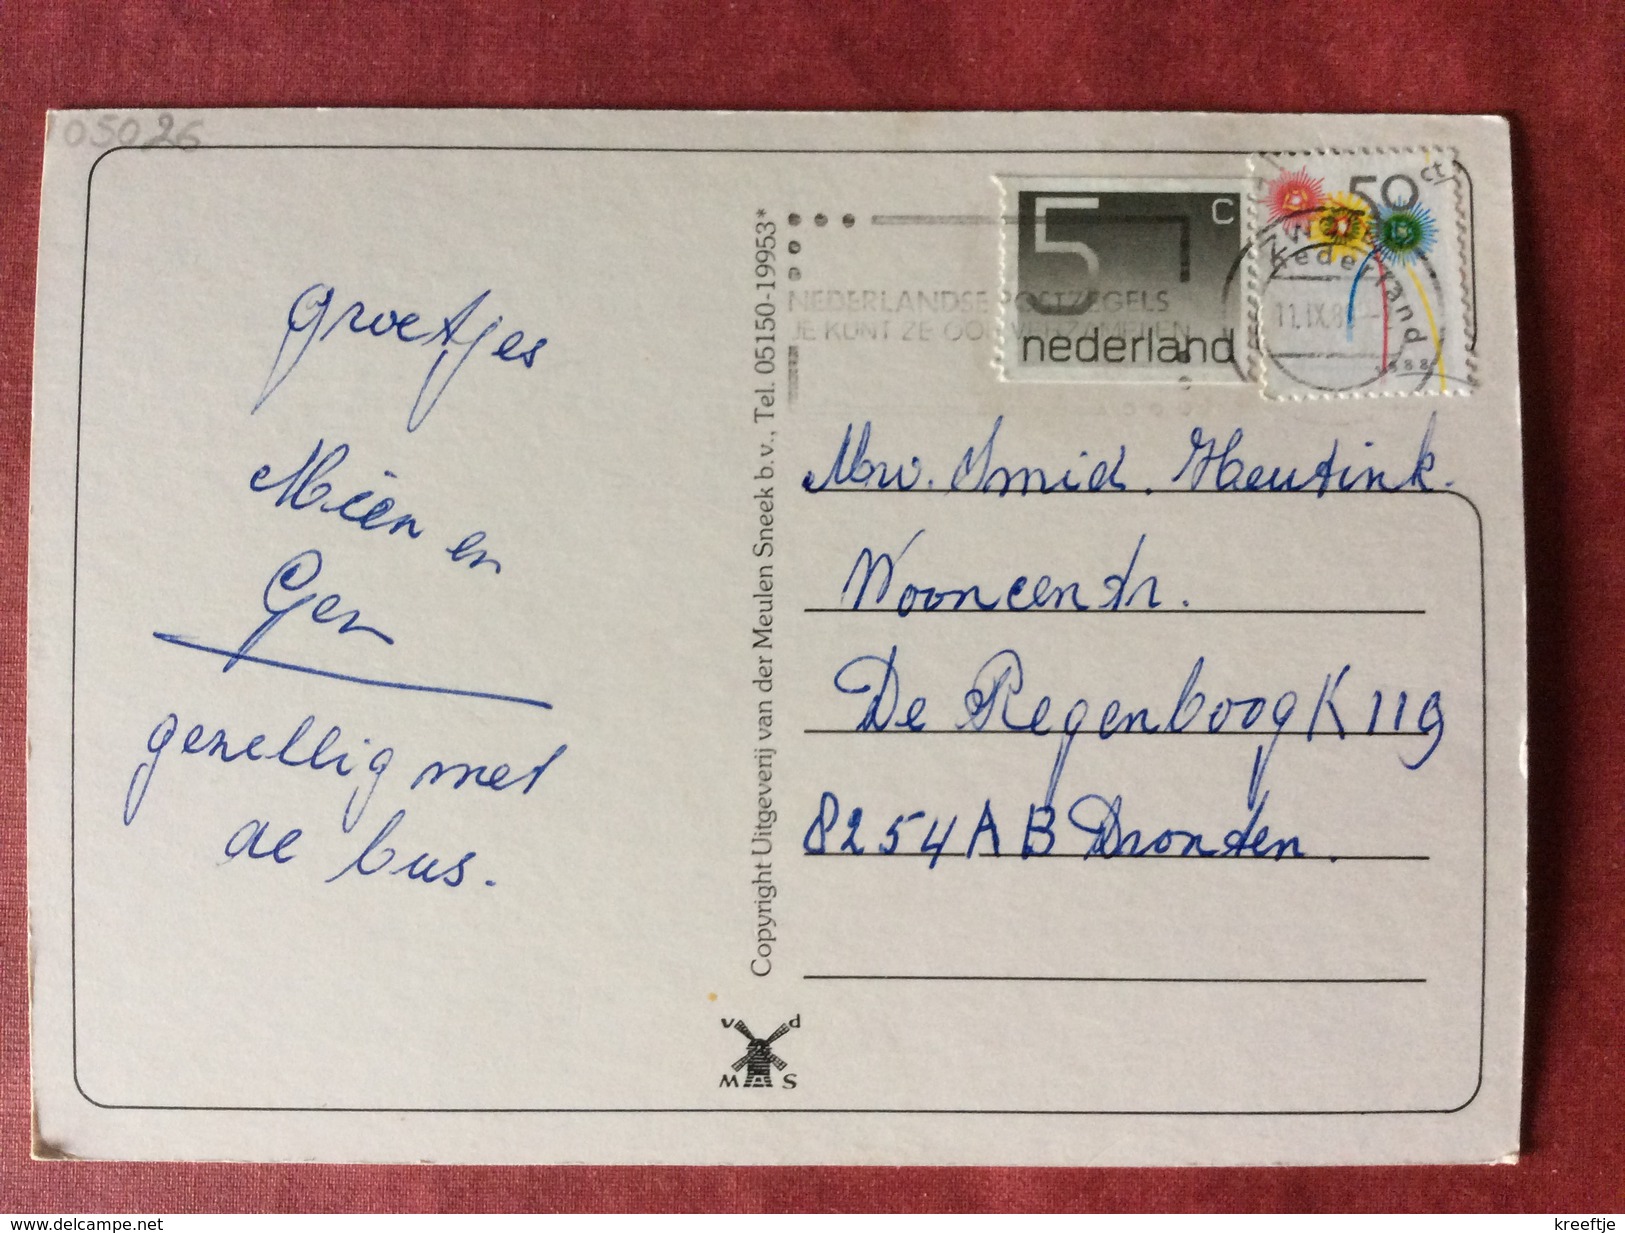 05026
groetjes
Miên en
Ger
gezellig met
de bus.
Copyright Uitgeverij van der Meulen Sneek b.v., Tel. 05150-19953*
v d
M S
5 c
nederland
50 ct
nederland
1988
NEDERLANDSE POSTZEGELS
JE KUNT ZE OOK VERZAMELEN
11.IX.8
Mw. Smid. Heutink.
Wooncentr.
De Regenboog K 119
8254 AB Dronten.
www.delcampe.net
kreeftje